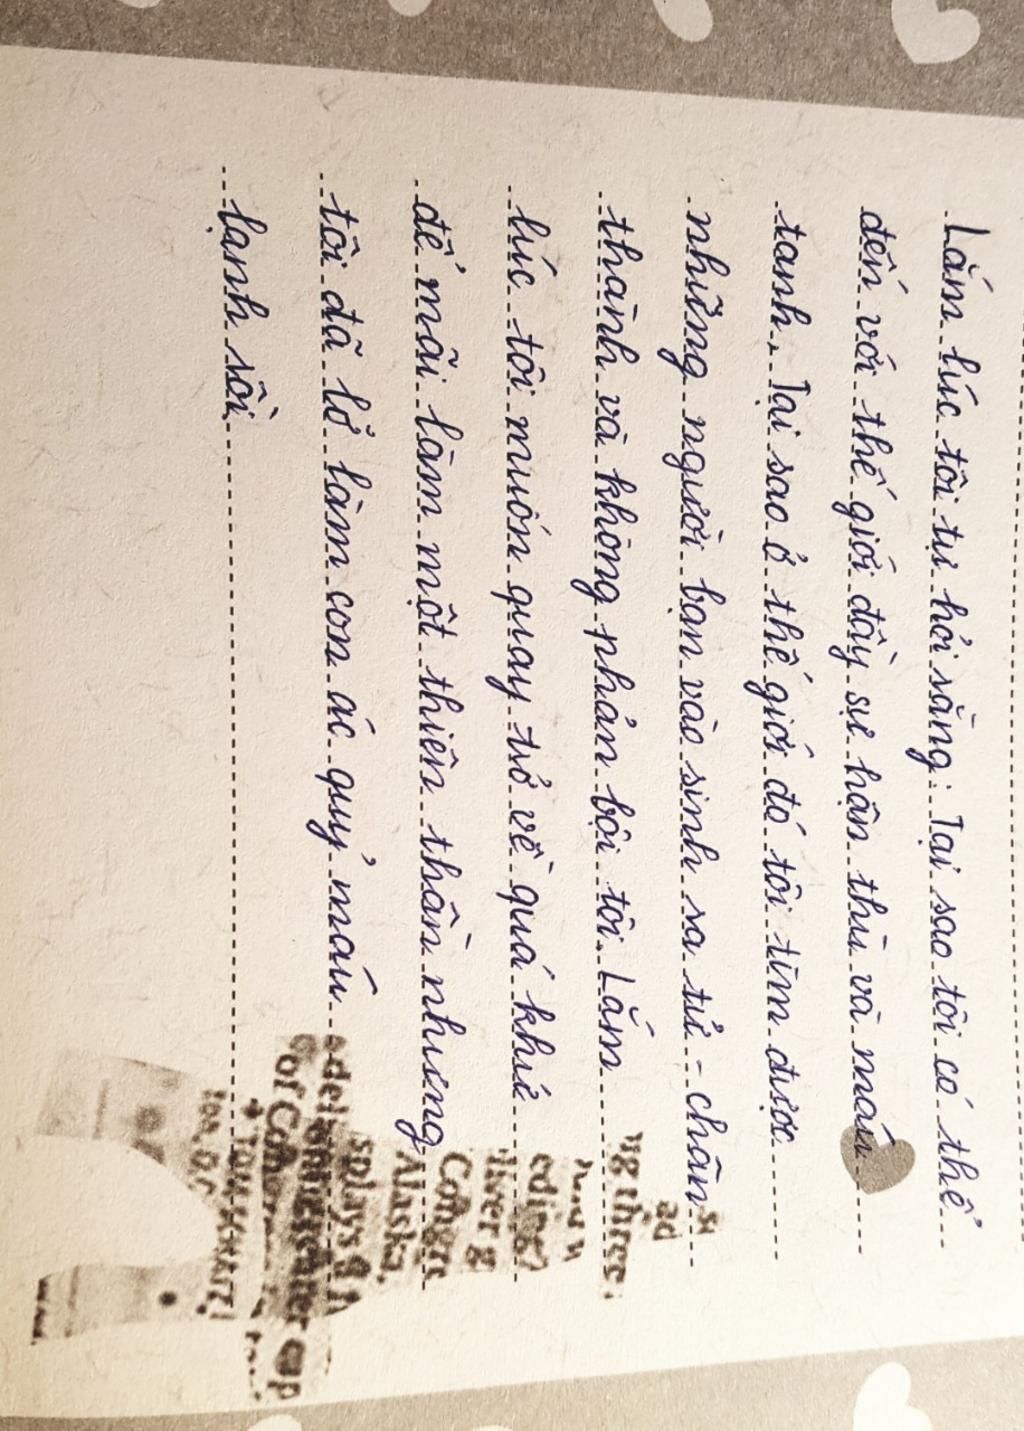 Lắm lúc tôi tự hỏi rằng: Tại sao tôi có thể
đến với thế giới đầy sự hận thù và máu
tanh. Tại sao ở thế giới đó tôi tìm được
những người bạn vào sinh ra tử - chân
thành và không phản bội tôi. Lắm
lúc tôi muốn quay trở về quá khứ
để mãi làm một thiên thần nhưng
tôi đã lỡ làm con ác quỷ máu
lạnh rồi.
ng three
ad
eding
Congre
Alaska,
splays a
of Co